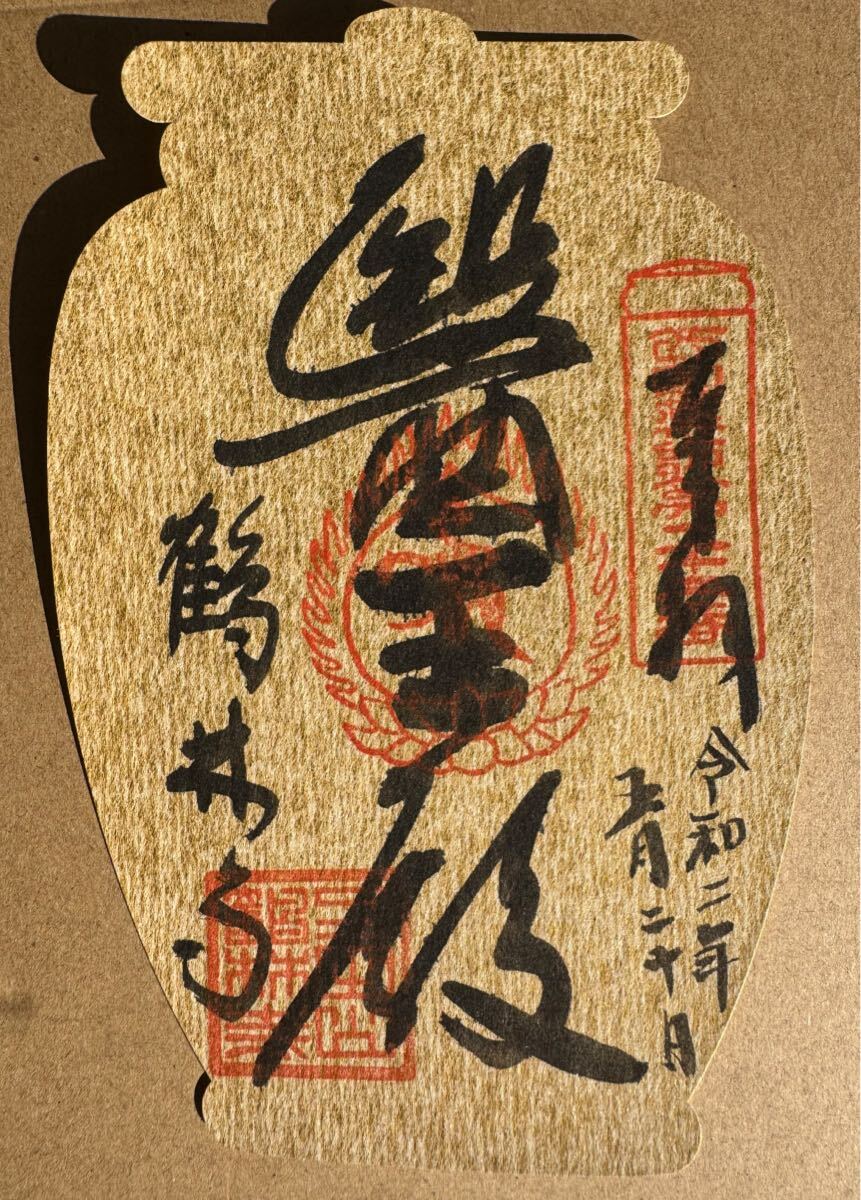 奉拝
令和二年
五月二十日
醫王殿
鶴林寺